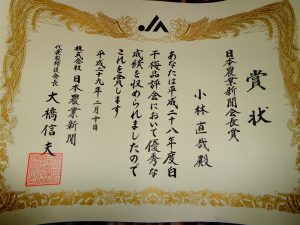 賞状
日本農業新聞会長賞
小林直哉殿
あなたは平成二十八年度白
干梅品評会において優秀な
成績を収められましたので
これを賞します
平成二十九年二月十日
株式会社日本農業新聞
代表取締役会長 大橋信夫